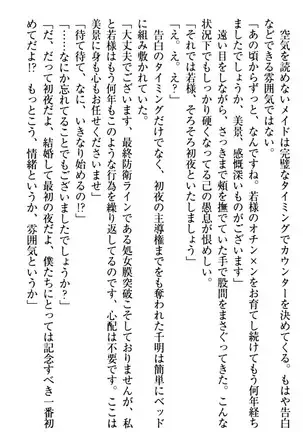 空気を読めないメイドは完璧なタイミングでカウンターを決めてくる。もはや告白
などできる雰囲気ではない。
「あの頃からずっと、なんですね。若様のオチン×ンをお育てし続けてもう何年経ち
ましたでしょうか、美景、感慨深いものがございます」
　遠い目をしながら、さっきまで頬を撫でていた手で股間をまさぐってくる。こんな
状況下でもしっかり硬くなってる己の愚息が恨めしい。
「それでは若様、そろそろ初夜といたしましょう」
「え。え。え？」
　告白のタイミングだけでなく、初夜の主導権までをも奪われた千明は簡単にベッド
に組み敷かれていた。
「大丈夫でございます。最終防衛ラインである処女膜突破こそしておりませんが、私
と若様はもう何年もこのような行為を繰り返してるのです、心配は不要です。ここは
美景に身も心もお任せくださいませ」
「待て待て、なに、いきなり始めるの!?」
「……なにか忘れてることでもございましたでしょうか？」
「だ、だって初夜だよ、結婚して最初の夜だよ、僕たちにとっては記念すべき一番初
めてだよ!?　もっとこう、情緒というか、雰囲気というか」